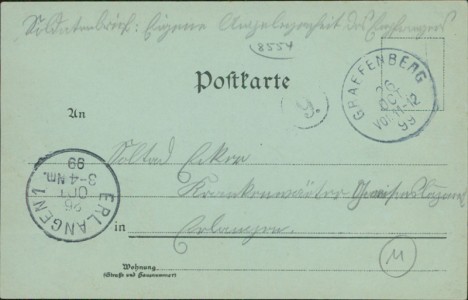 Soldatenbrief: Eigene Angelegenheit des Empfängers
8554
Postkarte
9.
GRAEFFENBERG
26
OCT
VOR. 11-12
99
An
Soldat
Krankenwärter
in Erlangen.
ERLANGEN 1
26
OCT
3-4 Nm.
99
Wohnung
(Straße und Hausnummer)
M